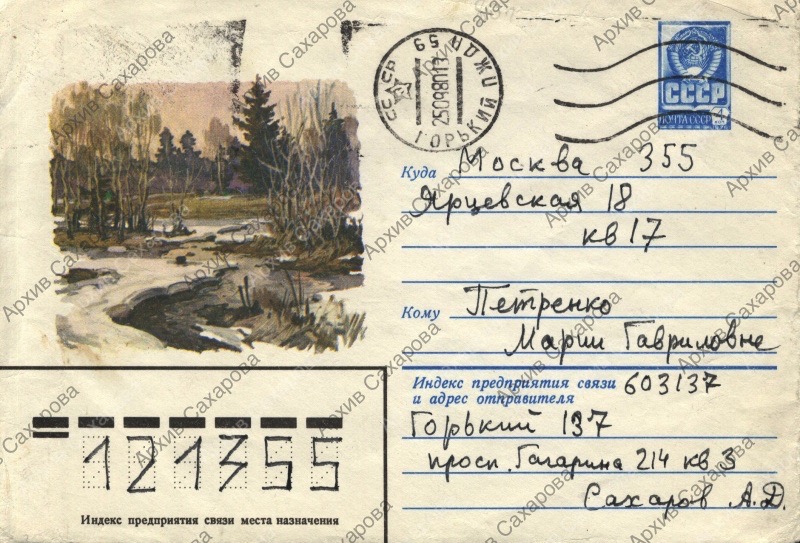 СССР
65 НОЖИ
25098011
ГОРЬКИЙ
СССР
ПОЧТА СССР
Куда Москва 355
Ярцевская 18
кв 17
Кому Петренко
Марии Гавриловне
Индекс предприятия связи 603137
и адрес отправителя
Горький 137
просп. Гагарина 214 кв 3
Сахаров А.Д.
121355
Индекс предприятия связи места назначения
Архив Сахарова